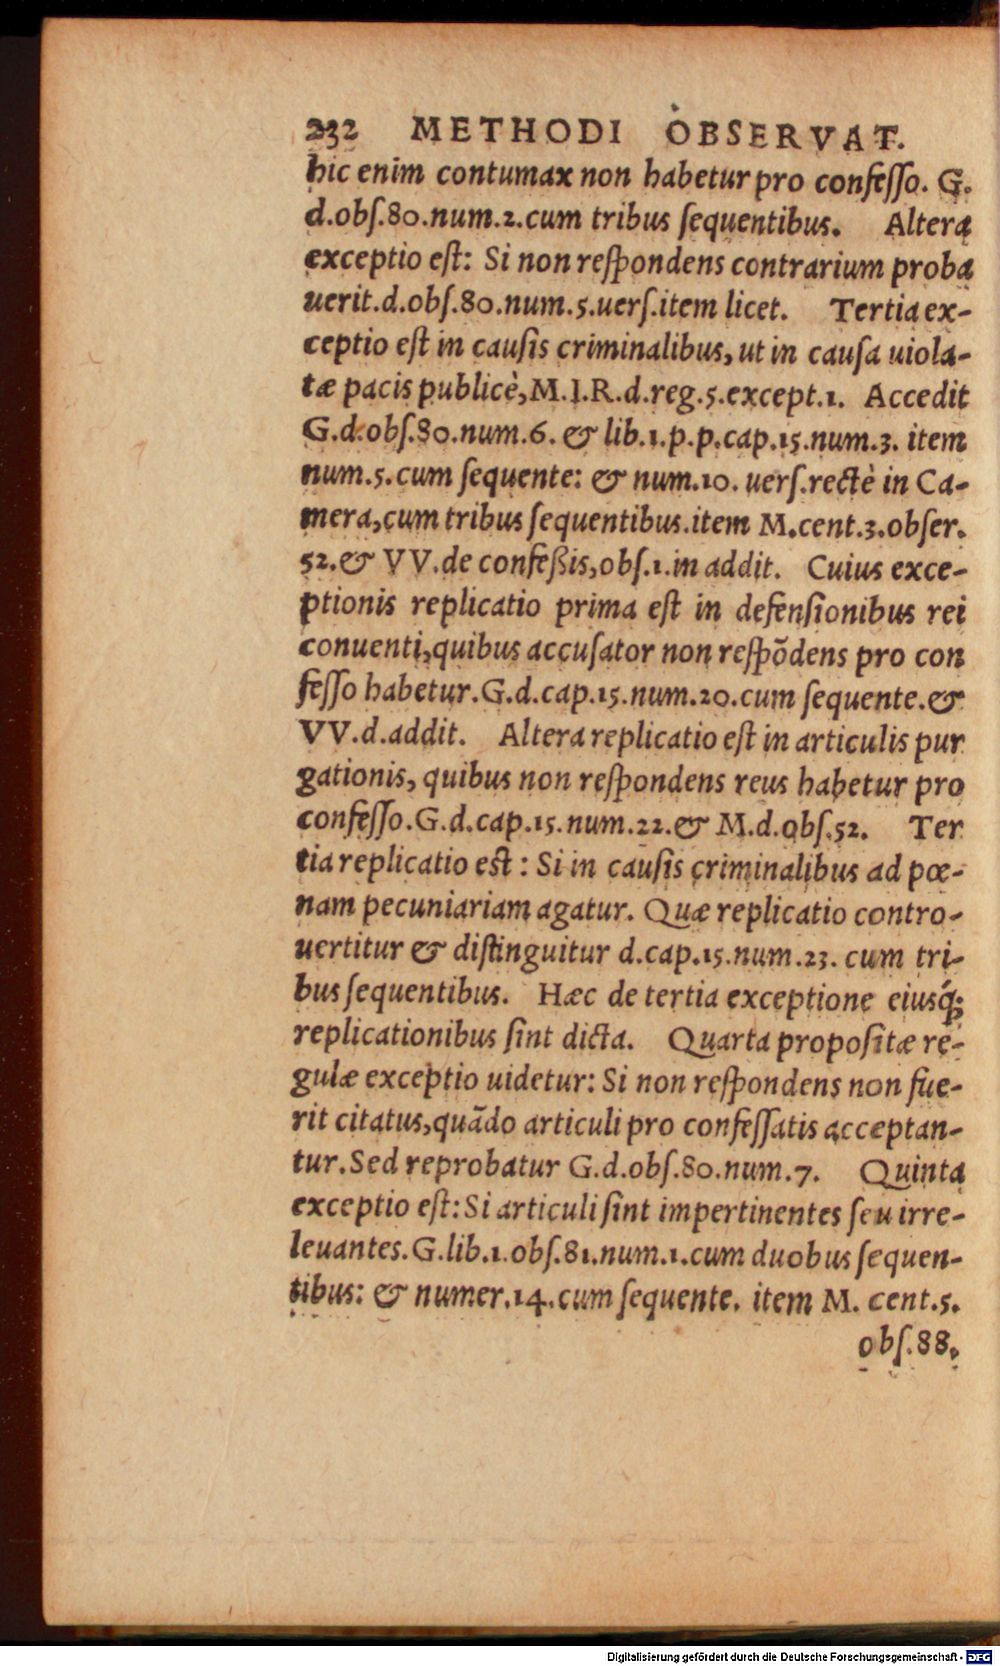 232 METHODI OBSERVAT.
hic enim contumax non habetur pro confeſſo. G.
d.obſ.80.num.2.cum tribus ſequentibus. Altera
exceptio eſt: Si non reſpondens contrarium proba
uerit.d.obſ.80.num.5.uerſ.item licet. Tertia ex-
ceptio eſt in cauſis criminalibus, ut in cauſa uiola-
tæ pacis publicè, M.I.R.d.reg.5.except.1. Accedit
G.d.obſ.80.num.6. & lib.1.p.p.cap.15.num.3. item
num.5.cum ſequente: & num.10. uerſ.rectè in Ca-
mera, cum tribus ſequentibus.item M.cent.3.obſer.
52.& VV.de confeßis, obſ.1.in addit. Cuius exce-
ptionis replicatio prima eſt in defenſionibus rei
conuenti, quibus accuſator non reſpõdens pro con
feſſo habetur.G.d.cap.15.num.20.cum ſequente.&
VV.d.addit. Altera replicatio eſt in articulis pur
gationis, quibus non reſpondens reus habetur pro
confeſſo.G.d.cap.15.num.22.& M.d.obſ.52. Ter
tia replicatio est: Si in cauſis criminalibus ad pœ-
nam pecuniariam agatur. Quæ replicatio contro-
uertitur & diſtinguitur d.cap.15.num.23. cum tri-
bus ſequentibus. Hæc de tertia exceptione eiusq́;
replicationibus ſint dicta. Quarta propoſitæ re-
gulæ exceptio uidetur: Si non reſpondens non fue-
rit citatus, quãdo articuli pro confeſſatis acceptan-
tur. Sed reprobatur G.d.obſ.80.num.7. Quinta
exceptio eſt: Si articuli ſint impertinentes ſeu irre-
leuantes.G.lib.1.obſ.81.num.1.cum duobus ſequen-
tibus: & numer.14.cum ſequente. item M. cent.5.
obſ.88.
Digitalisierung gefördert durch die Deutsche Forschungsgemeinschaft - DFG